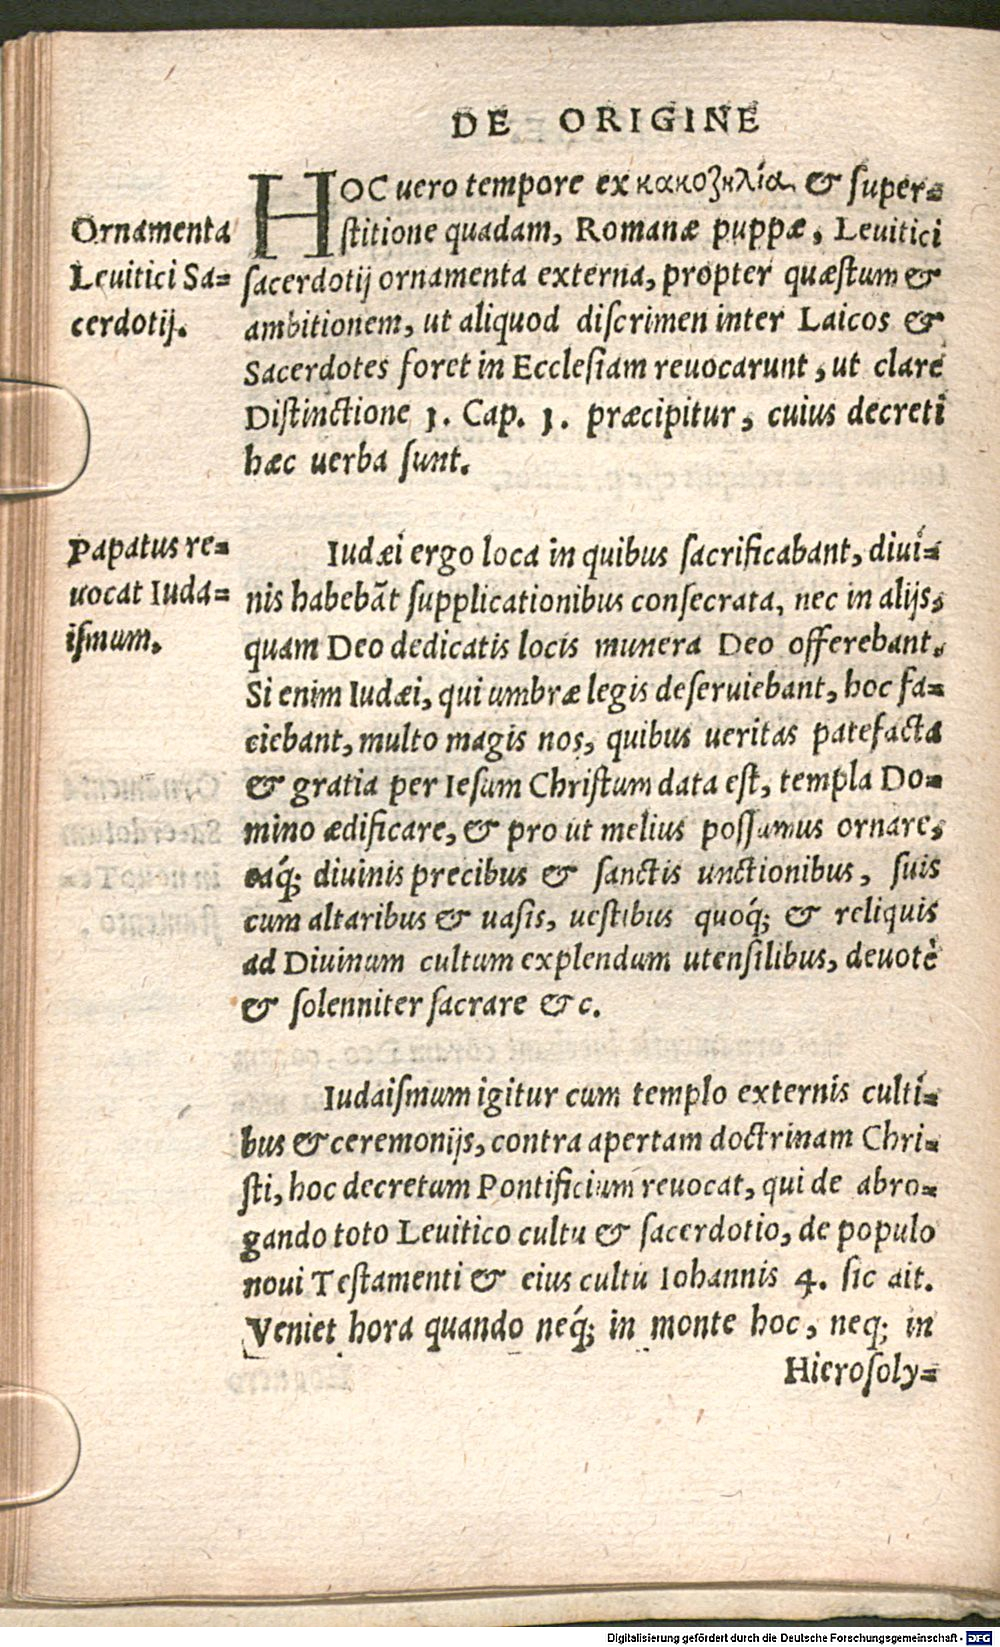 DE ORIGINE
HOC uero tempore ex κακοζηλίᾳ & ſuper=
ſtitione quadam, Romanæ puppæ, Leuitici
ſacerdotij ornamenta externa, propter quæſtum &
ambitionem, ut aliquod diſcrimen inter Laicos &
Sacerdotes foret in Eccleſiam reuocarunt, ut clarè
Diſtinctione 1. Cap. 1. præcipitur, cuius decreti
hæc uerba ſunt.
Ornamenta
Leuitici Sa=
cerdotij.
Iudæi ergo loca in quibus ſacrificabant, diui=
nis habebãt ſupplicationibus conſecrata, nec in alijs,
quam Deo dedicatis locis munera Deo offerebant.
Si enim Iudæi, qui umbræ legis deſeruiebant, hoc fa=
ciebant, multo magis nos, quibus ueritas patefacta
& gratia per Ieſum Chriſtum data eſt, templa Do=
mino ædificare, & pro ut melius poſſumus ornare,
eaq́; diuinis precibus & ſanctis unctionibus, ſuis
cum altaribus & uaſis, ueſtibus quoq́; & reliquis
ad Diuinum cultum explendum utenſilibus, deuotè
& ſolenniter ſacrare &c.
Papatus re=
uocat Iuda=
iſmum.
Iudaiſmum igitur cum templo externis culti=
bus & ceremonijs, contra apertam doctrinam Chri=
ſti, hoc decretum Pontificium reuocat, qui de abro=
gando toto Leuitico cultu & ſacerdotio, de populo
noui Teſtamenti & eius cultu Iohannis 4. ſic ait.
Veniet hora quando neq́; in monte hoc, neq; in
Hieroſoly=
Digitalisierung gefördert durch die Deutsche Forschungsgemeinschaft - DFG